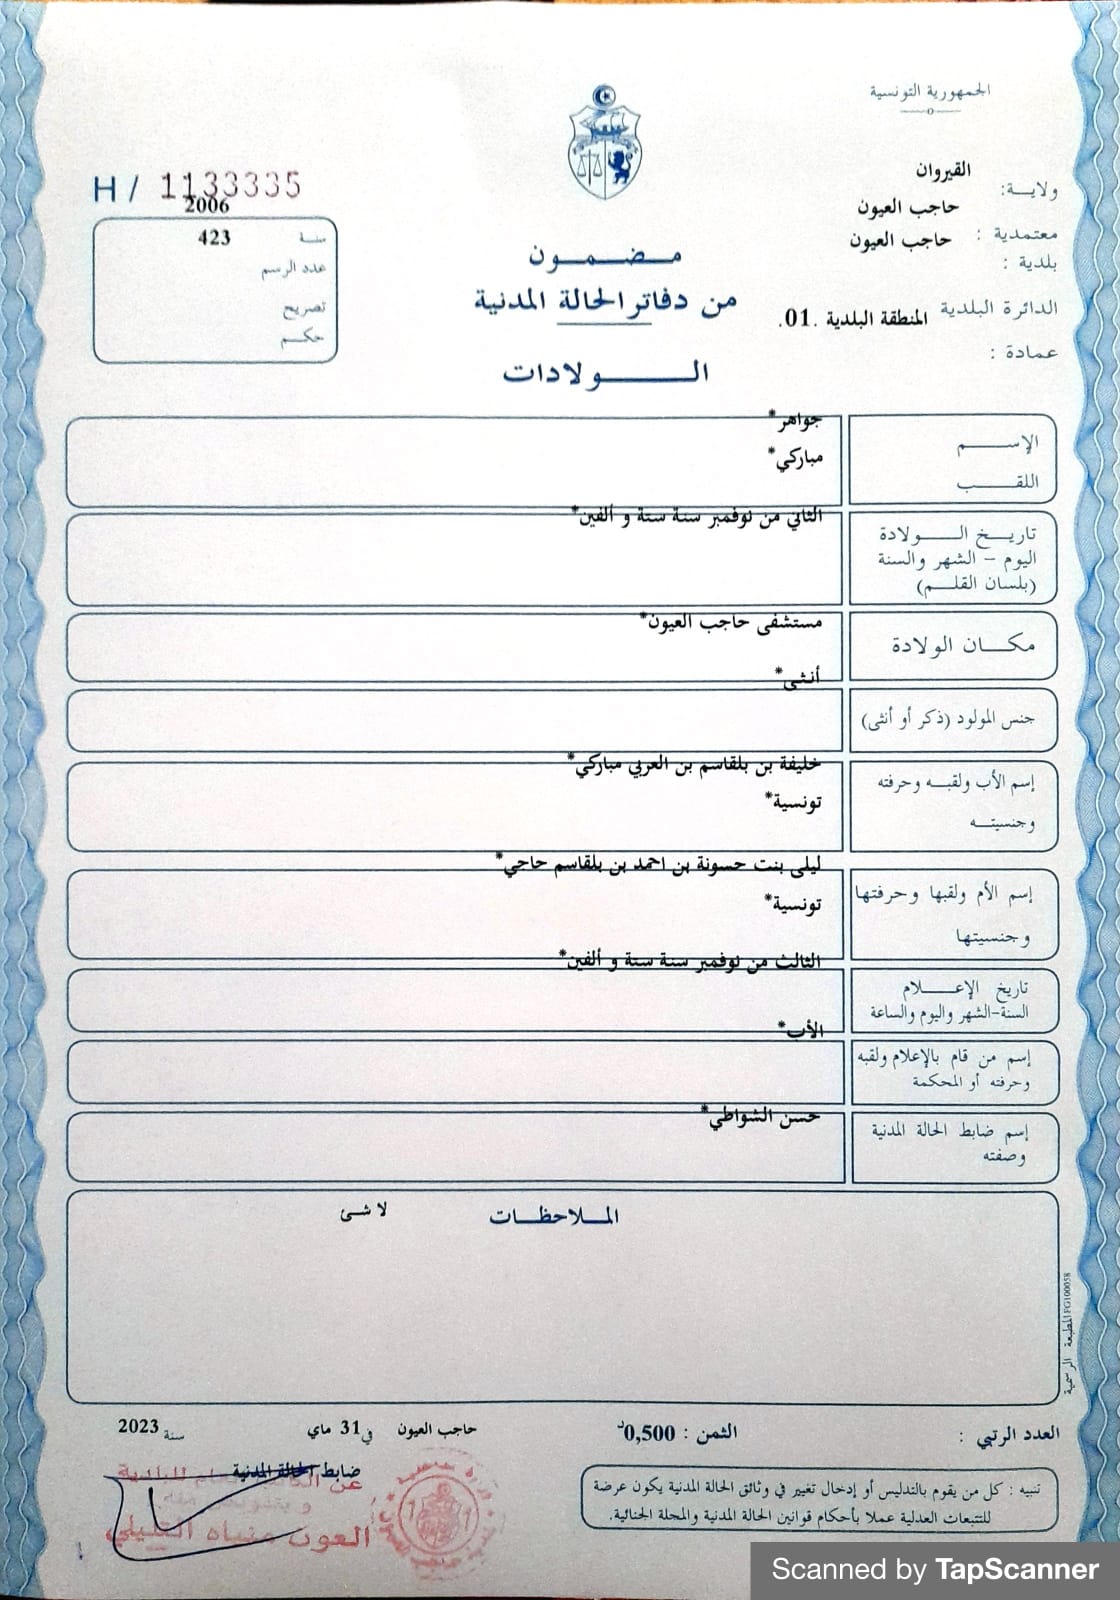 الجمهورية التونسية
ولايـــة: القيروان
معتمدية : حاجب العيون
بلدية : حاجب العيون
الدائرة البلدية المنطقة البلدية .01.
عمادة :
مـــضـــمـــون
من دفاتر الحالة المدنية
الـــــــولادات
H / 1133335
سنـة 2006
عدد الرسم 423
تصريح
حكـــم
الإســــــم جواهر*
اللقـــــب مباركي*
تاريـــخ الـــــولادة
اليوم - الشهر والسنة
(بلسان القلـــم)
الثاني من نوفمبر سنة ستة و ألفين*
مكـــان الولادة مستشفى حاجب العيون*
جنس المولود (ذكر أو أنثى) أنثى*
إسم الأب ولقبـــه وحرفته خليفة بن بلقاسم بن العربي مباركي*
وجنسيتـــه تونسية*
إسم الأم ولقبها وحرفتها ليلى بنت حسونة بن احمد بن بلقاسم حاجي*
وجنسيتها تونسية*
تاريخ الإعـــــلام
السنة-الشهر واليوم والساعة
الثالث من نوفمبر سنة ستة و ألفين*
إسم من قام بالإعلام ولقبه
وحرفته أو المحكمة
الأب*
إسم ضابط الحالة المدنية
وصفته
حسن الشواطي*
المـــلاحظـــات لا شئ
المطبعة الرسمية FG100058
العدد الرتبي : الثمن : 0,500د
حاجب العيون في 31 ماي سنة 2023
ضابط الحالة المدنية
و بتفويض منه
العون
تنبيه : كل من يقوم بالتدليس أو إدخال تغيير في وثائق الحالة المدنية يكون عرضة
للتتبعات العدلية عملا بأحكام قوانين الحالة المدنية والمجلة الجنائية.
Scanned by TapScanner